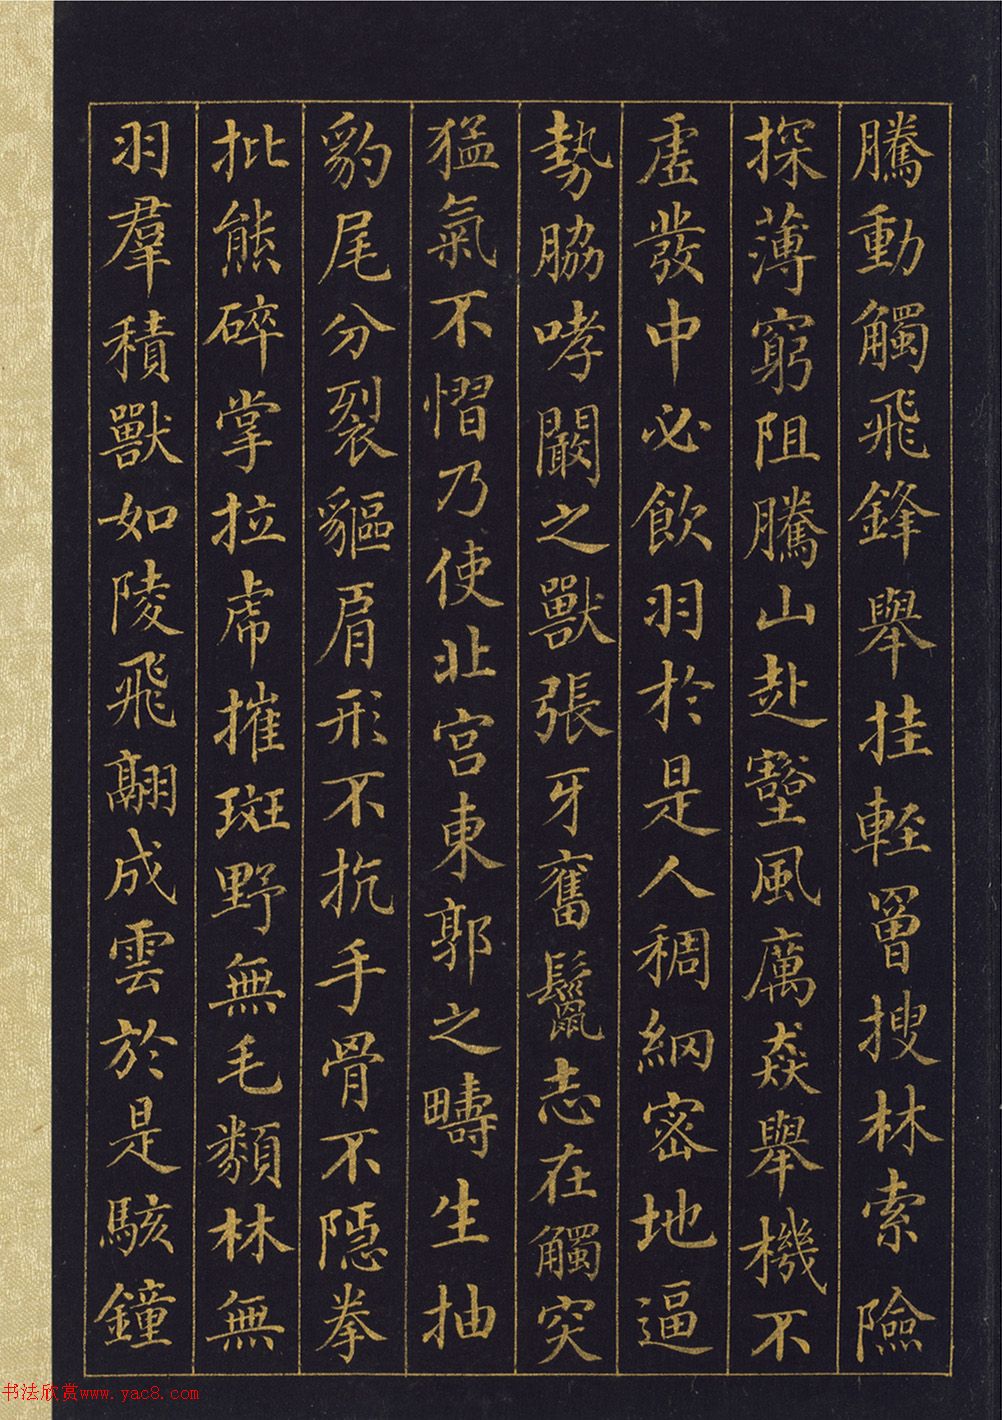 騰動觸飛鋒舉挂輕罾搜林索險
探薄窮阻騰山赴壑風厲猋舉機不
虛發中必飲羽於是人稠網密地逼
勢脇哮闞之獸張牙奮鬣志在觸突
猛氣不慴乃使北宮東郭之疇生抽
豹尾分裂貙肩形不抗手骨不隱拳
批熊碎掌拉虎摧斑野無毛類林無
羽羣積獸如陵飛翮成雲於是駭鐘
书法欣赏www.yac8.com